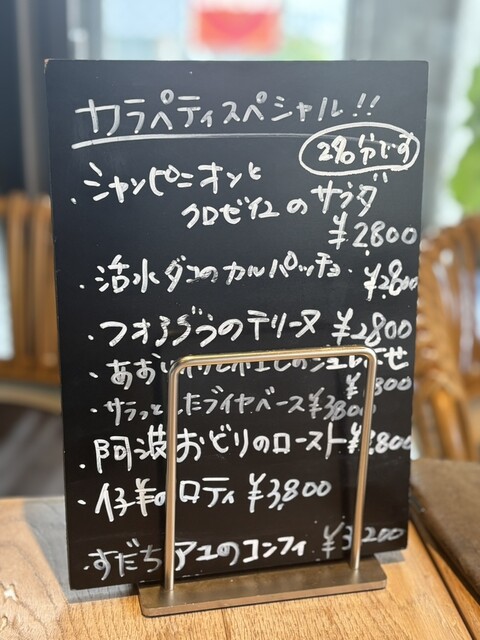 カラペティスペシャル!!
2名分です
・シャンピニオンと
クロゼイユのサラダ
¥2,800
・活水ダコのカルパッチョ ¥2,800
・フォアグラのテリーヌ ¥2800
・あおり
800
・サラっとしたブイヤベース ¥3,800
・阿波おどりのロースト ¥ 800
・仔羊のロティ ¥3,800
・すだちアユのコンフィ ¥3,200